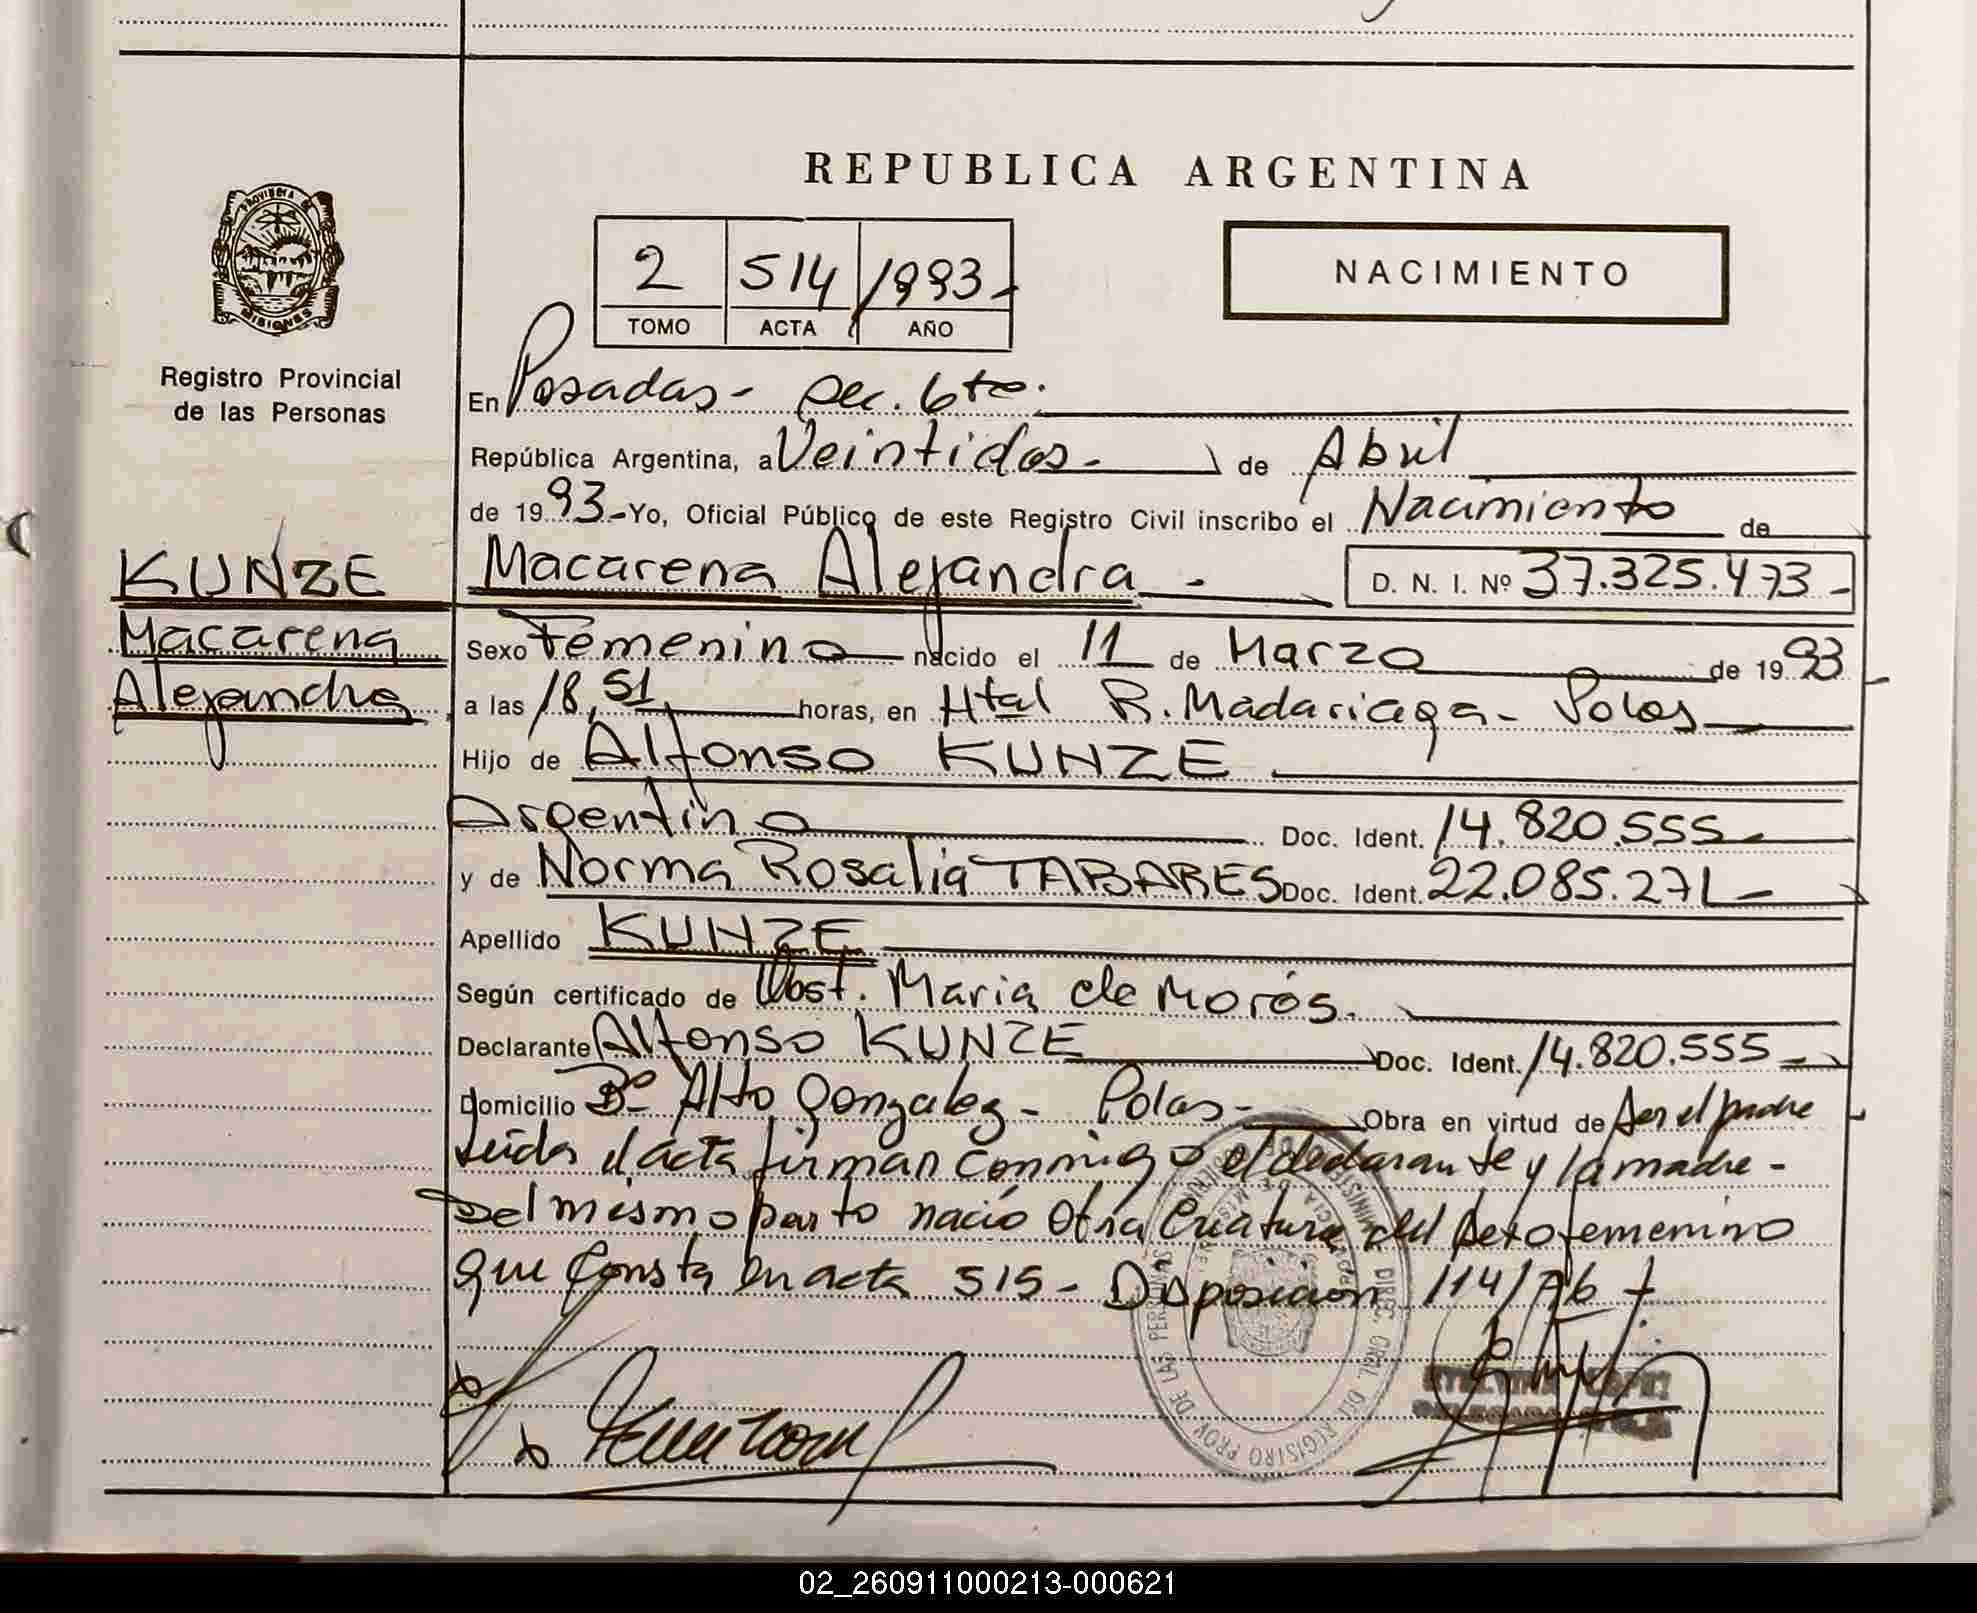 REPUBLICA ARGENTINA
PROVINCIA DE
MISIONES
2 514 1993-
TOMO ACTA AÑO
NACIMIENTO
Registro Provincial
de las Personas
En Posadas- Sec. 6ta.
República Argentina, a Veintidos- de Abril
de 1993-Yo, Oficial Público de este Registro Civil inscribo el Nacimiento de
KUNZE Macarena Alejandra - D. N. I. Nº 37.325.473-
Macarena Sexo Femenino nacido el 11 de Marzo de 1993
Alejandra a las 18,51 horas, en Htal R. Madariaga- Pdas
Hijo de Alfonso KUNZE
Argentino Doc. Ident. 14.820.555-
y de Norma Rosalia TABARES Doc. Ident. 22.085.271-
Apellido KUNZE
Según certificado de Obst. Maria de Morós.
Declarante Alfonso KUNZE Doc. Ident. 14.820.555-
Domicilio Bº Alto Gonzalez- Pdas- Obra en virtud de Ser el padre
Leida el acta firman conmigo el declarante y la madre-
Del mismo parto nació Otra Criatura del Sexo femenino
que Consta en acta 515- Disposicion 114/76
02_260911000213-000621